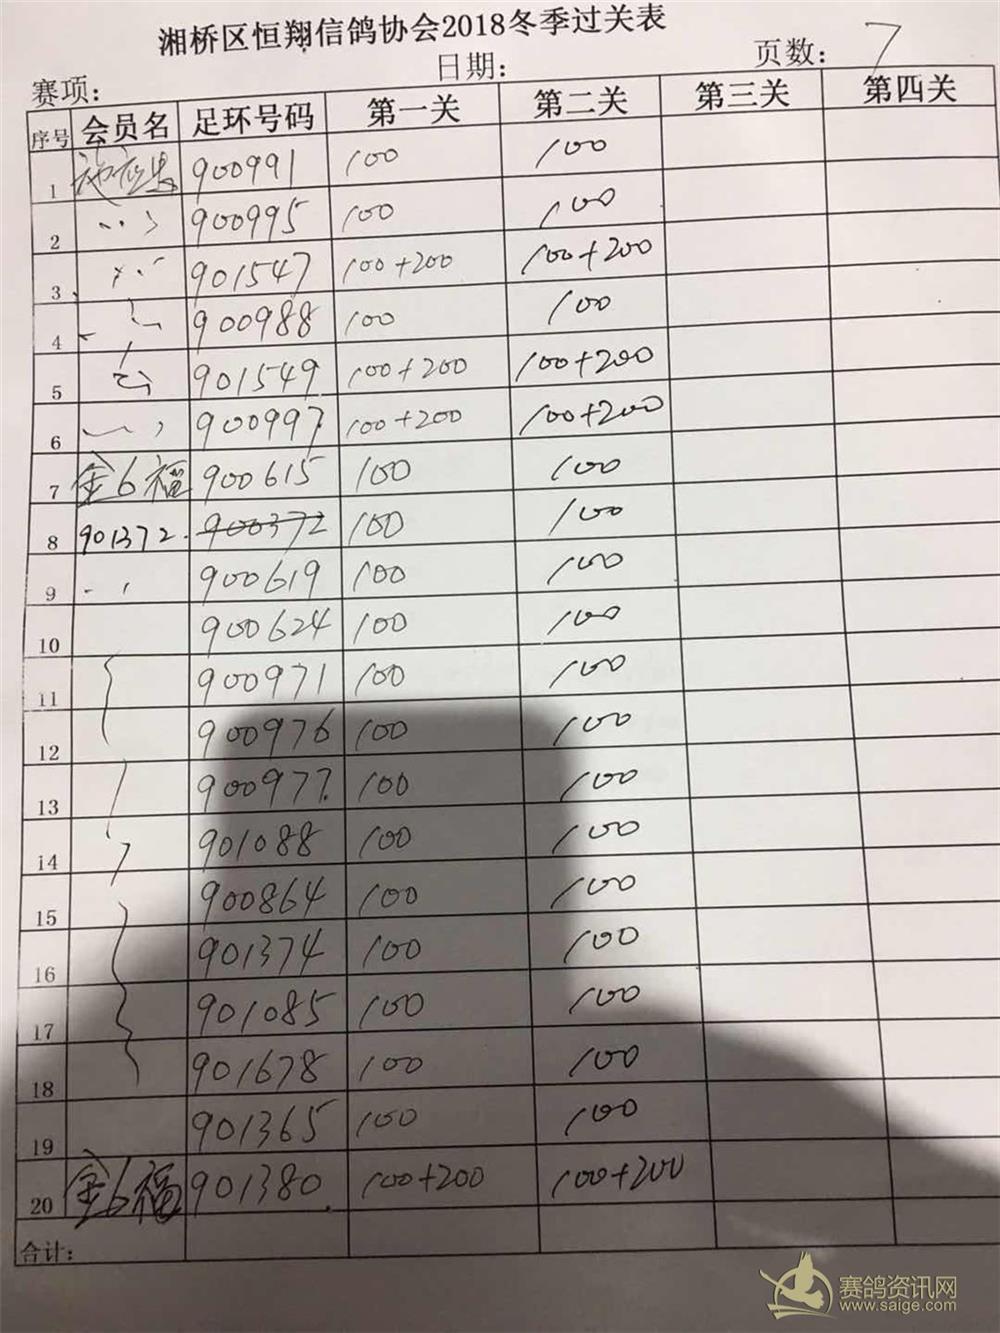 湘桥区恒翔信鸽协会2018冬季过关表
赛项: 日期: 页数: 7
序号 会员名 足环号码 第一关 第二关 第三关 第四关
1 900991 100 100
2 900995 100 100
3 901547 100+200 100+200
4 900988 100 100
5 901549 100+200 100+200
6 900997 100+200 100+200
7 金6福 900615 100 100
8 901372. 900372 100 100
9 900619 100 100
10 900624 100 100
11 900971 100 100
12 900976 100 100
13 900977. 100 100
14 901088 100 100
15 900864 100 100
16 901374 100 100
17 901085 100 100
18 901678 100 100
19 901365 100 100
20 金6福 901380. 100+200 100+200
合计:
赛鸽资讯网
www.saige.com